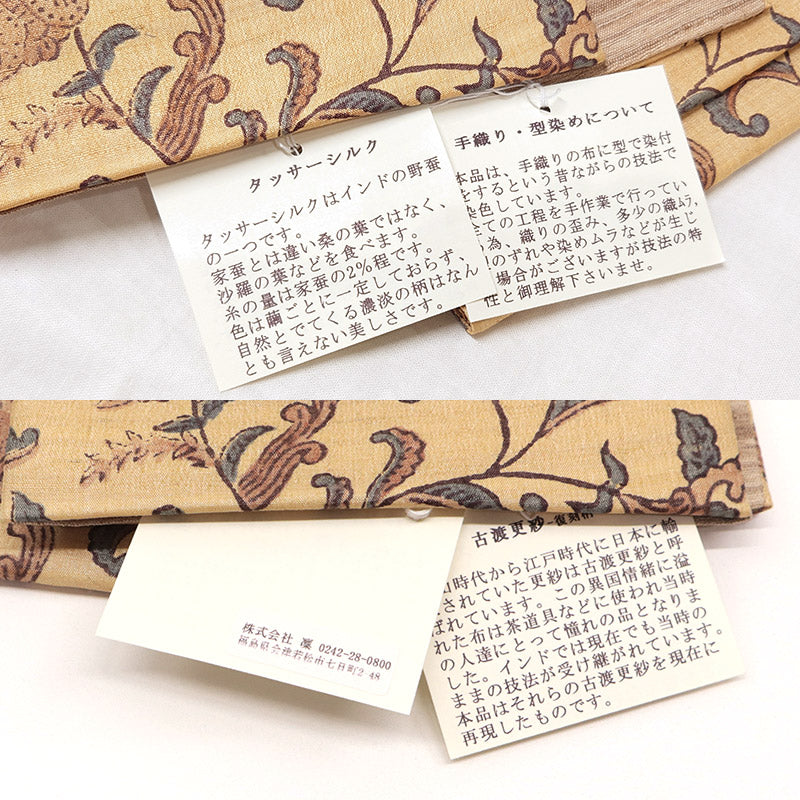 タッサーシルク
タッサーシルクはインドの野蚕
の一つです。
家蚕とは違い桑の葉ではなく、
沙羅の葉などを食べます。
糸の量は家蚕の2%程です。
色は繭ごとに一定しておらず、
自然とでてくる濃淡の柄はなん
とも言えない美しさです。
手織り・型染めについて
本品は、手織りの布に型で染付
をするという昔ながらの技法で
染色しています。
全ての工程を手作業で行ってい
る為、織りの歪み、多少の織ムラ、
のずれや染めムラなどが生じ
場合がございますが技法の特
性と御理解下さいませ。
株式会社 凜 0242-28-0800
福島県会津若松市七日町2-48
古渡更紗-復刻布
時代から江戸時代に日本に輸
されていた更紗は古渡更紗と呼
ばれています。この異国情緒に溢
れた布は茶道具などに使われ当時
の人達にとって憧れの品となりま
した。インドでは現在でも当時の
ままの技法が受け継がれています。
本品はそれらの古渡更紗を現在に
再現したものです。